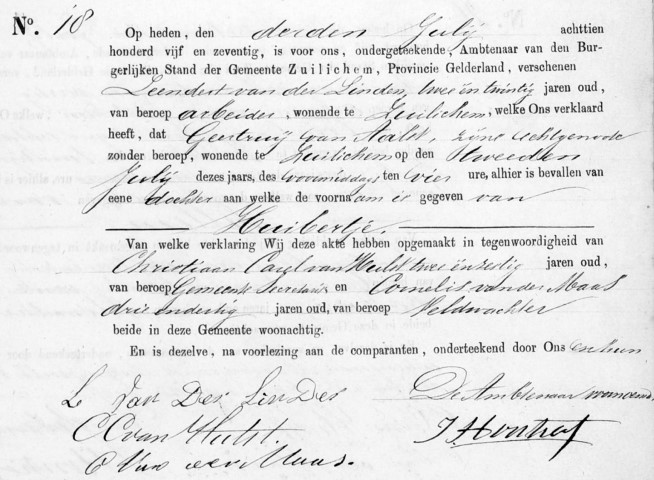 No. 18 Op heden, den derden Julij achttien
honderd vijf en zeventig, is voor ons, ondergeteekende, Ambtenaar van den Bur-
gerlijken Stand der Gemeente Zuilichem, Provincie Gelderland, verschenen
Leendert van der Linden, twee en twintig jaren oud,
van beroep arbeider, wonende te Zuilichem, welke Ons verklaard
heeft, dat Geertruij van Aalst, zijne echtgenoote
zonder beroep, wonende te Zuilichem op den tweeden
Julij dezes jaars, des voormiddags ten vier ure, alhier is bevallen van
eene dochter aan welke de voornaam is gegeven van
Huibertje.
Van welke verklaring Wij deze akte hebben opgemaakt in tegenwoordigheid van
Christiaan Carel van Hulst twee en zestig jaren oud,
van beroep Gemeente Secretaris en Cornelis van der Maas
drie en dertig jaren oud, van beroep Veldwachter
beide in deze Gemeente woonachtig.
En is dezelve, na voorlezing aan de comparanten, onderteekend door Ons en hun
L Van Der LinDen
De Ambtenaar voornoemd.
CC van Hulst.
C Van der Maas.